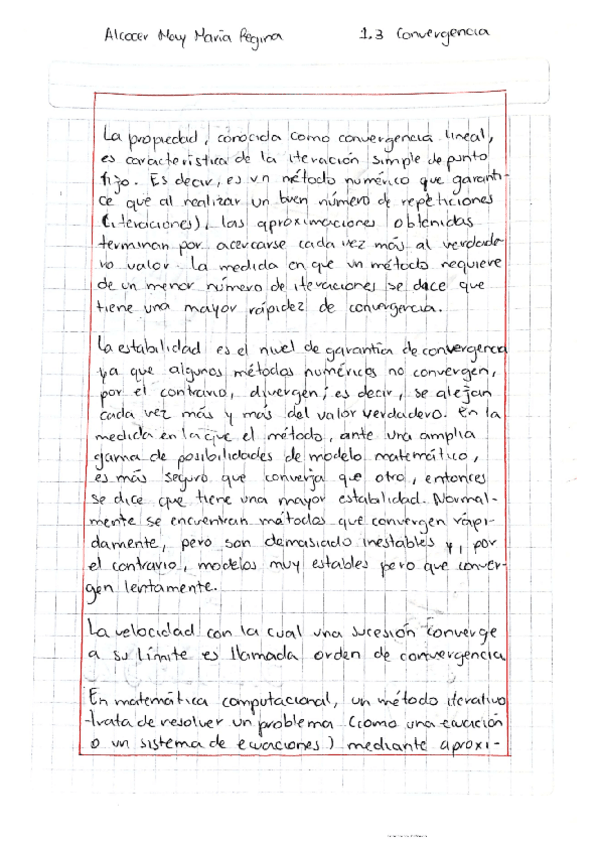 Alcocer May María Regina
1.3 Convergencia
La propiedad, conocida como convergencia lineal,
es característica de la iteración simple de punto
fijo. Es decir, es un método numérico que garanti-
ce que al realizar un buen número de repeticiones
(iteraciones), las aproximaciones obtenidas
terminan por acercarse cada vez más al verdade-
ro valor. La medida en que un método requiere
de un menor número de iteraciones se dice que
tiene una mayor rápidez de convergencia.
La estabilidad es el nivel de garantía de convergencia
ya que algunos métodos numéricos no convergen,
por el contrario, divergen; es decir, se alejan
cada vez más y más del valor verdadero. En la
medida en la que el método, ante una amplia
gama de posibilidades de modelo matemático,
es más seguro que converja que otro, entonces
se dice que tiene una mayor estabilidad. Normal-
mente se encuentran métodos que convergen rápi-
damente, pero son demasiado inestables y, por
el contrario, modelos muy estables pero que conver-
gen lentamente.
La velocidad con la cual una sucesión converge
a su límite es llamada orden de convergencia
En matemática computacional, un método iterativo
trata de resolver un problema (como una ecuación
o un sistema de ecuaciones) mediante aproxi-